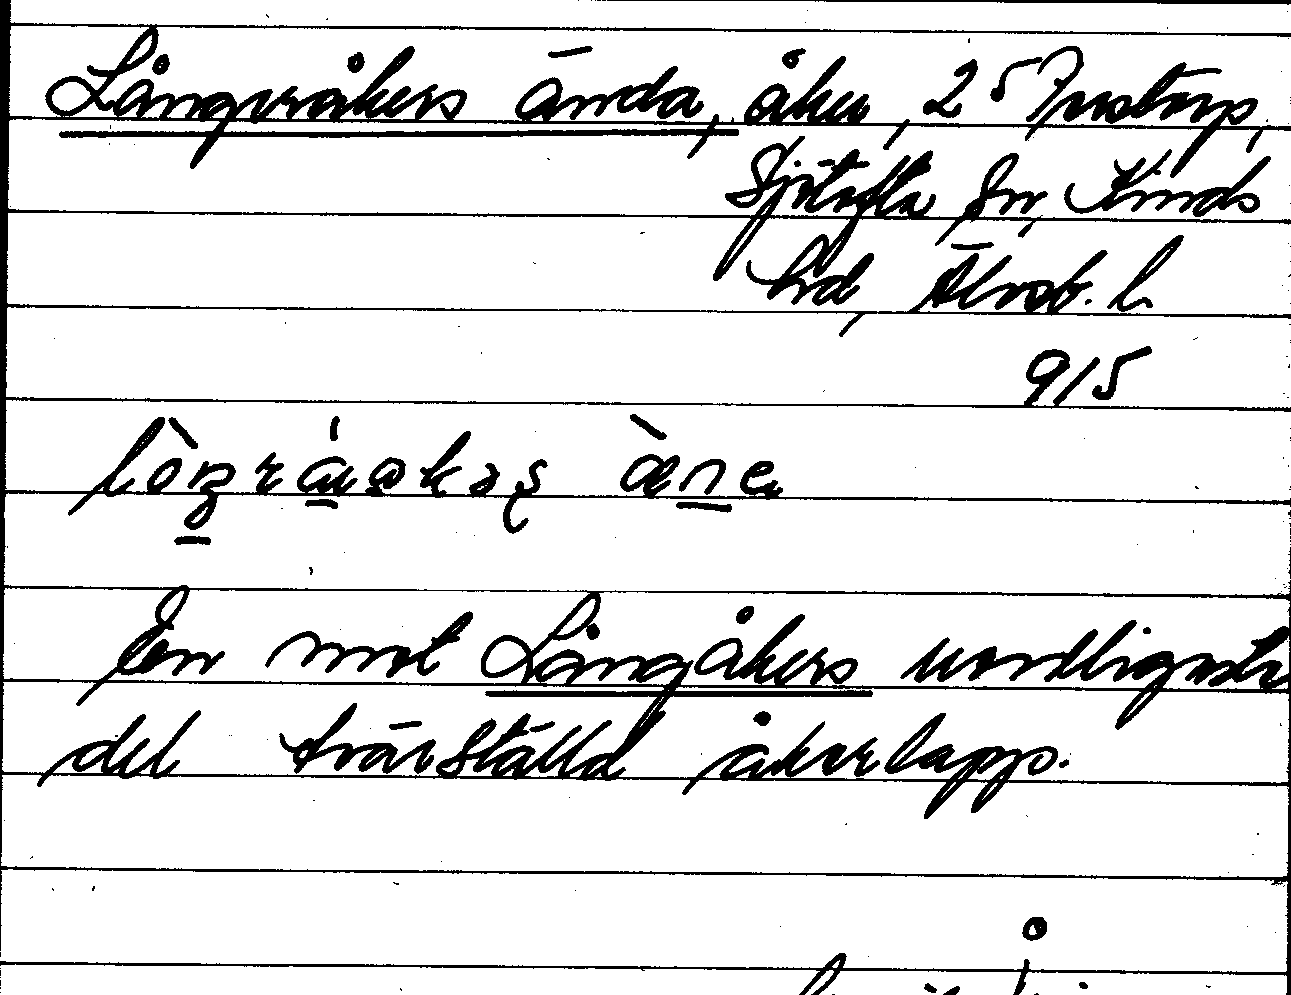 Långvråkers ända, åker, 25 Frustorp,
Sjötofta sn, Kinds
hd, Älvsb. l.
9/5
En mot Långåkers nordligaste
del tvärställd åkerlapp.